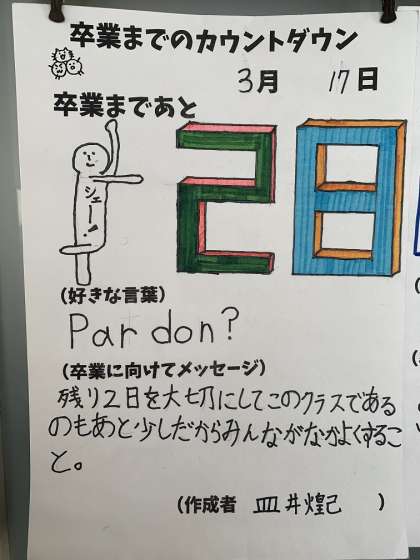 卒業までのカウントダウン
3月 17日
卒業まであと
2日
シェー!
(好きな言葉)
Pardon?
(卒業に向けてメッセージ)
残り2日を大切にしてこのクラスである
のもあと少しだからみんながなかよくするこ
と。
(作成者 皿井煌己 )